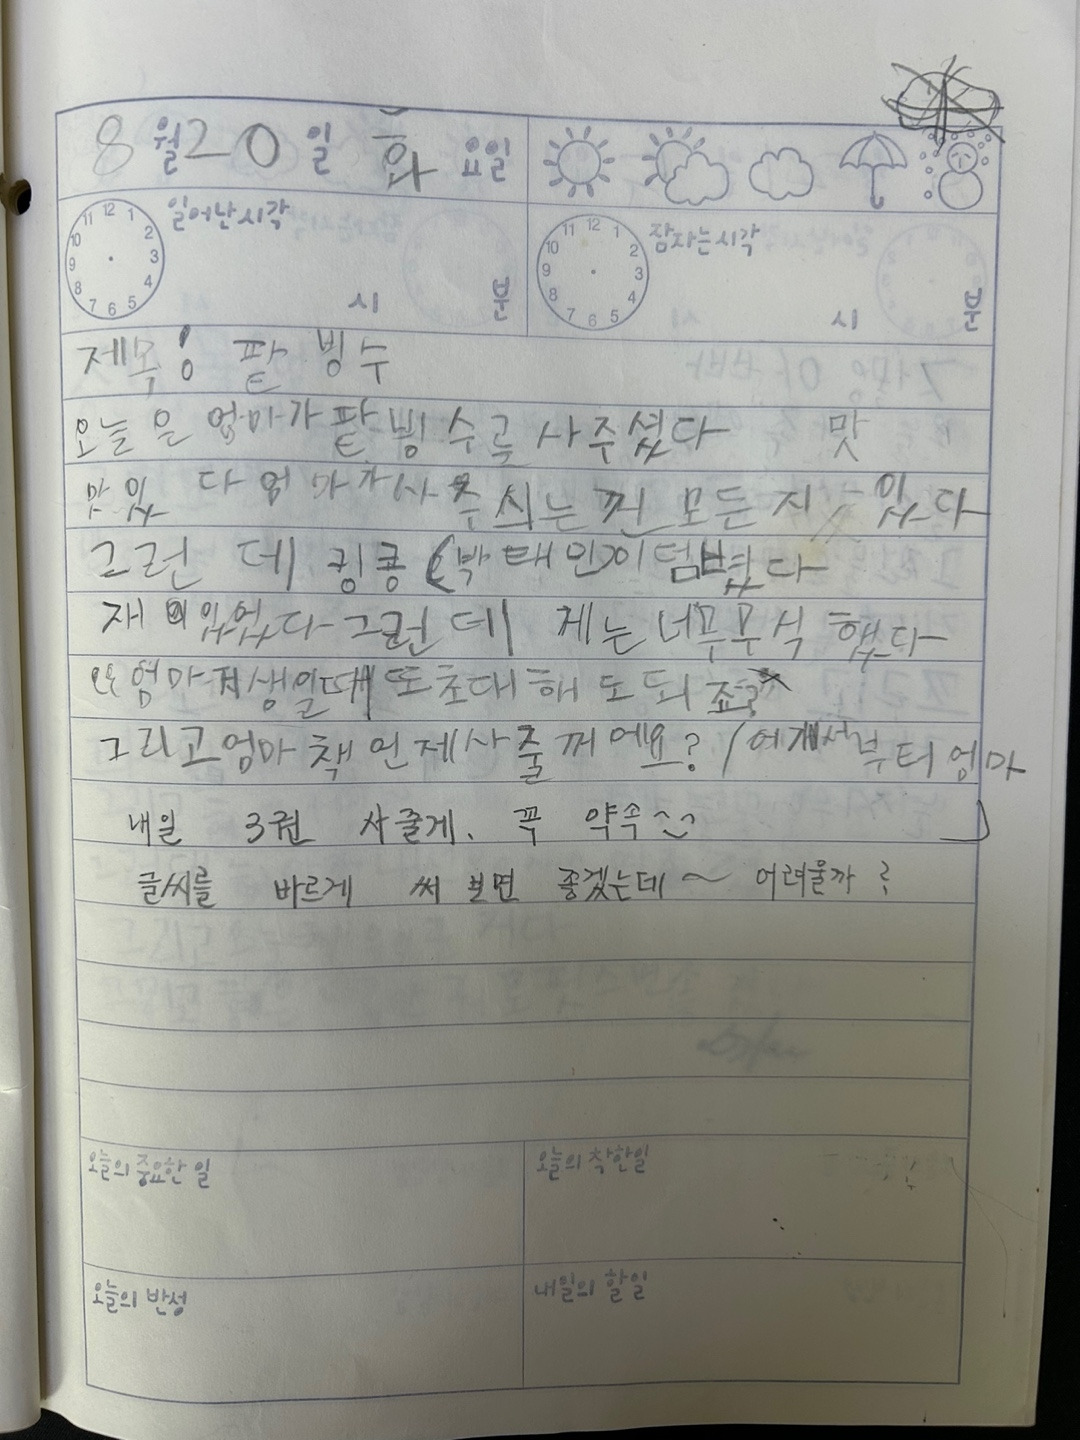 8월 20일 화요일
일어난시각
11 12 1
10 2
9 3
8 4
7 6 5
시 분
잠자는시각
11 12 1
10 2
9 3
8 4
7 6 5
시 분
제목: 팥 빙수
오늘은 엄마가 팥빙수로 사주셨다 맛
맛있다 엄마가사주싀는껀 모든지 있다
그런데 킹콩(박태인)이덤볐다
재미있었다그런데 제는너무무식했다
엄마제생일때또초대해도되죠?
그리고엄마 책언제사줄꺼에요? 부터엄마
내일 3권 사줄게. 꼭 약속
글씨를 바르게 써보면 좋겠는데~ 어려울까?
오늘의 중요한 일
오늘의 착한일
오늘의 반성
내일의 할일